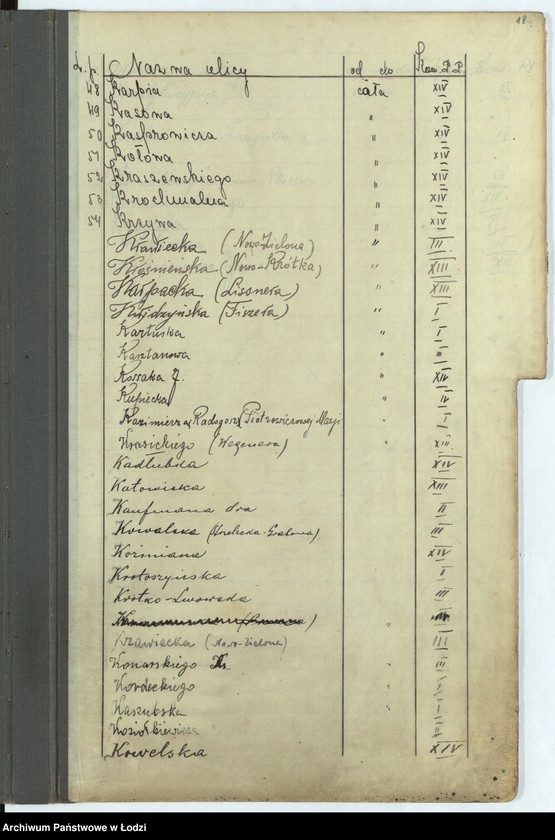 18
L.p. Nazwa ulicy od do Kom. P.P.
48 Karpia cała XIV
49 Kasowa " XIV
50 Kasprowicza " XIV
51 Kołowa " XIV
52 Kraszewskiego " XIV
53 Krochmalna " XIV
54 Krzywa " XIV
Krawiecka (Nowo-Zielona) " III
Krośnieńska (Nowo-Krótka) " XIII
Karpacka (Lissnera) " XIII
Kwidzyńska (Fiszera) " I
Kartuska " I
Kasztanowa " "
Kossaka J. " XIV
Kupiecka " IV
Kazimierza Radogoszcz (Piotrowiczowej Maryi " I
Krasickiego (Wegenera) " XIII
Kadłubka XIV
Katowicka XIII
Kaufmana dra II
Kowalska III
Koźmiana XIV
Krotoszyńska I
Krótko-Lwowska III
Krawiecka (Nowo-Zielona) III
Konarskiego Ks. " III
Kordeckiego " I
Kaszubska " I
Koziołkiewicza II
Kowelska XIV
Archiwum Państwowe w Łodzi